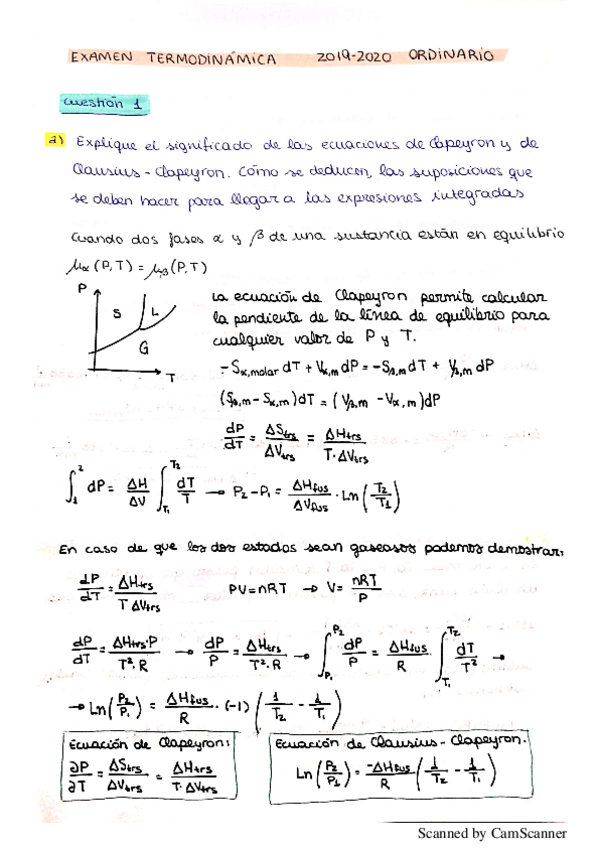 EXAMEN TERMODINÁMICA 2019-2020 ORDINARIO
Cuestión 1
a) Explique el significado de las ecuaciones de Capeyron y de
Clausius - Clapeyron. Cómo se deducen, las suposiciones que
se deben hacer para llegar a las expresiones integradas
Cuando dos fases α y β de una sustancia están en equilibrio
μα (P,T) = μβ (P,T)
P
S L
G
T
La ecuación de Clapeyron permite calcular
la pendiente de la línea de equilibrio para
cualquier valor de P y T.
-Sα,molar dT + Vα,m dP = -Sβ,m dT + Vβ,m dP
(Sβ,m - Sα,m) dT = (Vβ,m - Vα,m) dP
dP/dT = ΔStrs/ΔVtrs = ΔHtrs/T·ΔVtrs
∫₁² dP = ΔH/ΔV ∫T₁T₂ dT/T → P₂-P₁ = ΔHfus/ΔVfus · Ln (T₂/T₁)
En caso de que los dos estados sean gaseosos podemos demostrar:
dP/dT = ΔHtrs/T ΔVtrs PV=nRT → V= nRT/P
dP/dT = ΔHtrs·P/T²·R → dP/P = ΔHtrs/T²·R → ∫P₁P₂ dP/P = ΔHfus/R ∫T₁T₂ dT/T² →
→ Ln (P₂/P₁) = ΔHfus/R · (-1) (1/T₂ - 1/T₁)
Ecuación de Clapeyron:
∂P/∂T = ΔStrs/ΔVtrs = ΔHtrs/T·ΔVtrs
Ecuación de Clausius - Clapeyron.
Ln (P₂/P₁) = -ΔHfus/R (1/T₂ - 1/T₁)
Scanned by CamScanner